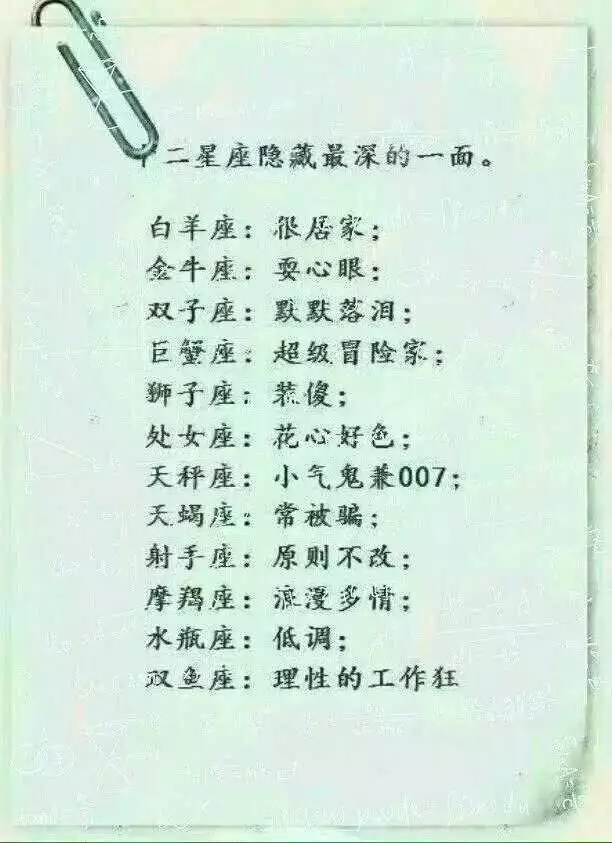 十二星座隐藏最深的一面。
白羊座：很居家；
金牛座：耍心眼：
双子座：默默落泪；
巨蟹座：超级冒险家；
狮子座：装傻；
处女座：花心好色；
天秤座：小气鬼兼007；
天蝎座：常被骗；
射手座：原则不改；
摩羯座：浪漫多情；
水瓶座：低调；
双鱼座：理性的工作狂